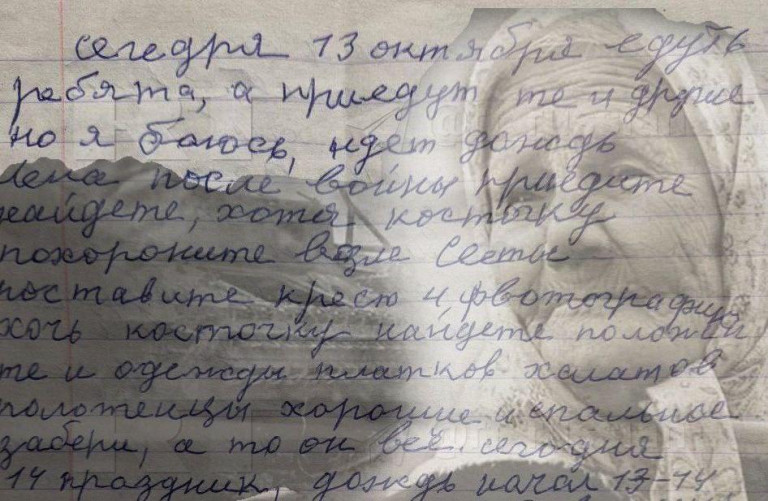 сегедня 13 октября едуть
ребята, а приедут те и другие
но я баюсь, идет дождь
Лена после войны приедите
найдете, хотя косточку
похороните возле Светы
поставите крест и фвотографию
хочь косточку найдете положи
те и одежды платков халатов
полотенцы хорошие и спальное
забери, а то он все сегодня
14 праздник, дождь начал 13-14